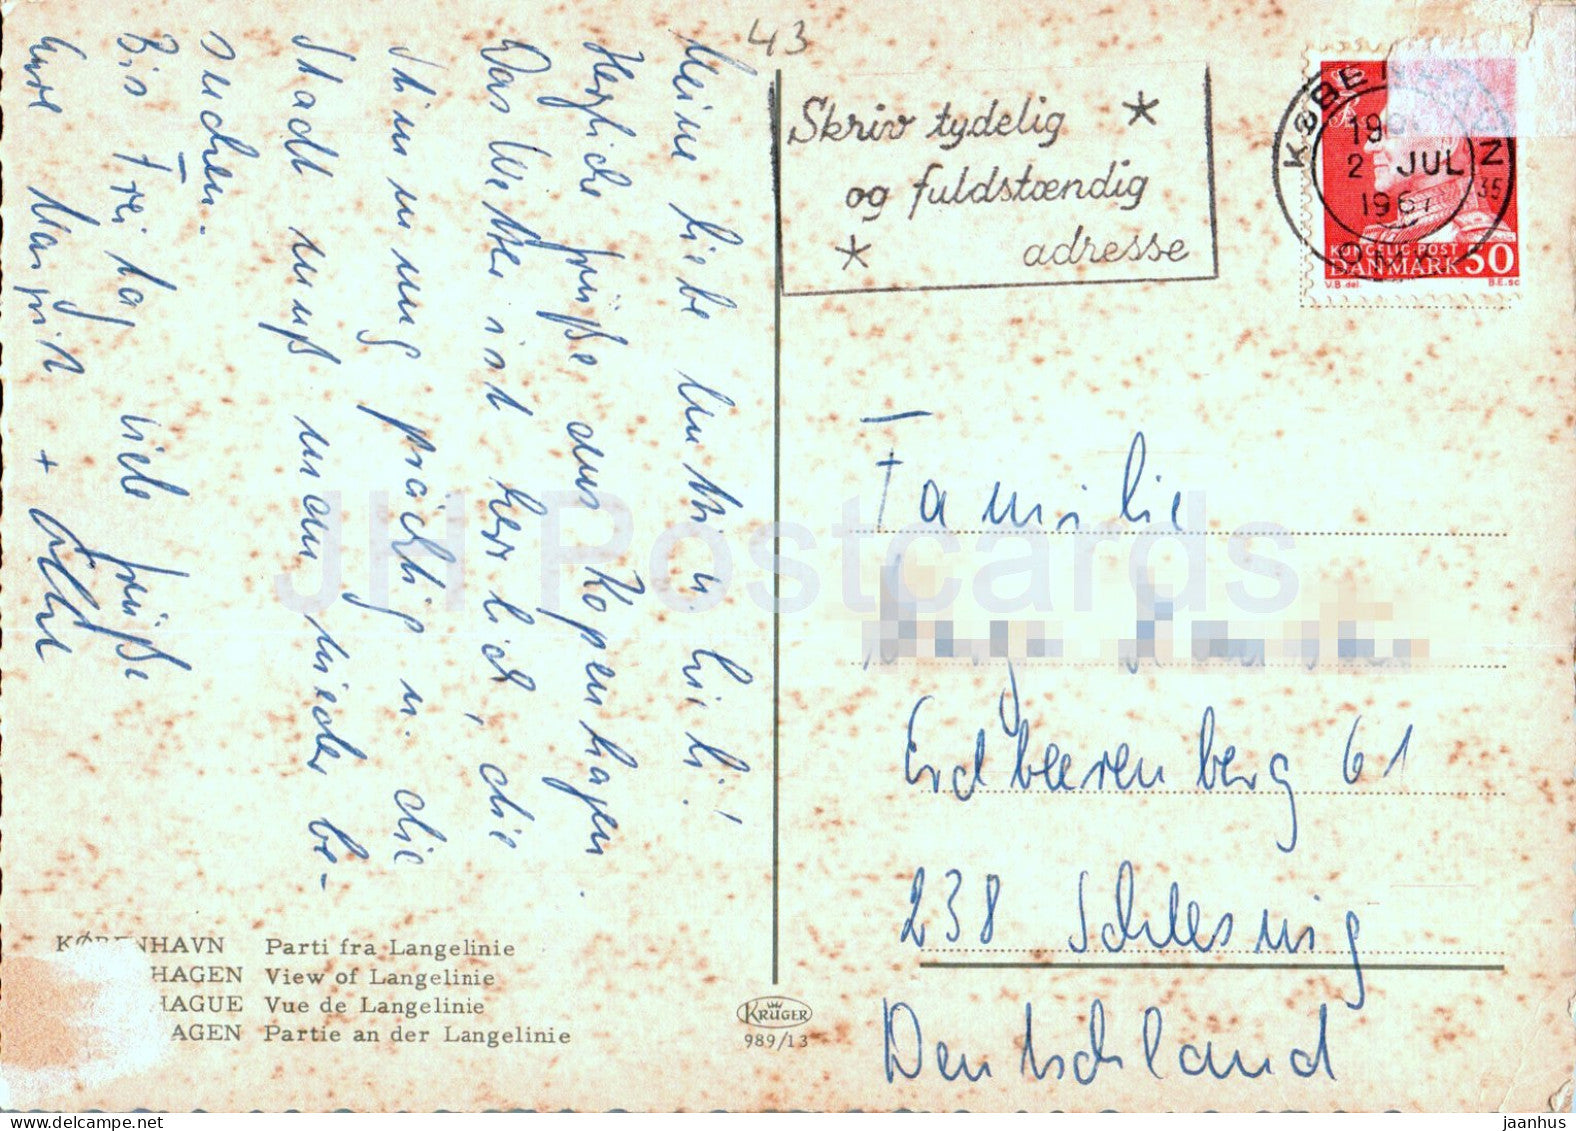 43
Meine liebe Mutti u. Lieli!
Herzliche Grüße aus Kopenhagen.
Das Wetter ist herrlich, die
Stimmung prächtig u. die
Stadt muß man wieder be-
suchen.
Bis Freitag viele Grüße
Eure Margrit +
Skriv tydelig
og fuldstændig
adresse
KØBENHAVN
OMK.
19
2 JUL
1967
35
KONGELIG POST
DANMARK 50
V.B. del. B.E. sc
Familie
Erdbeerenberg 61
238 Schleswig
Deutschland
KØBENHAVN Parti fra Langelinie
HAGEN View of Langelinie
HAGUE Vue de Langelinie
AGEN Partie an der Langelinie
KRÜGER
989/13
JH Postcards
www.delcampe.net
jaanhus